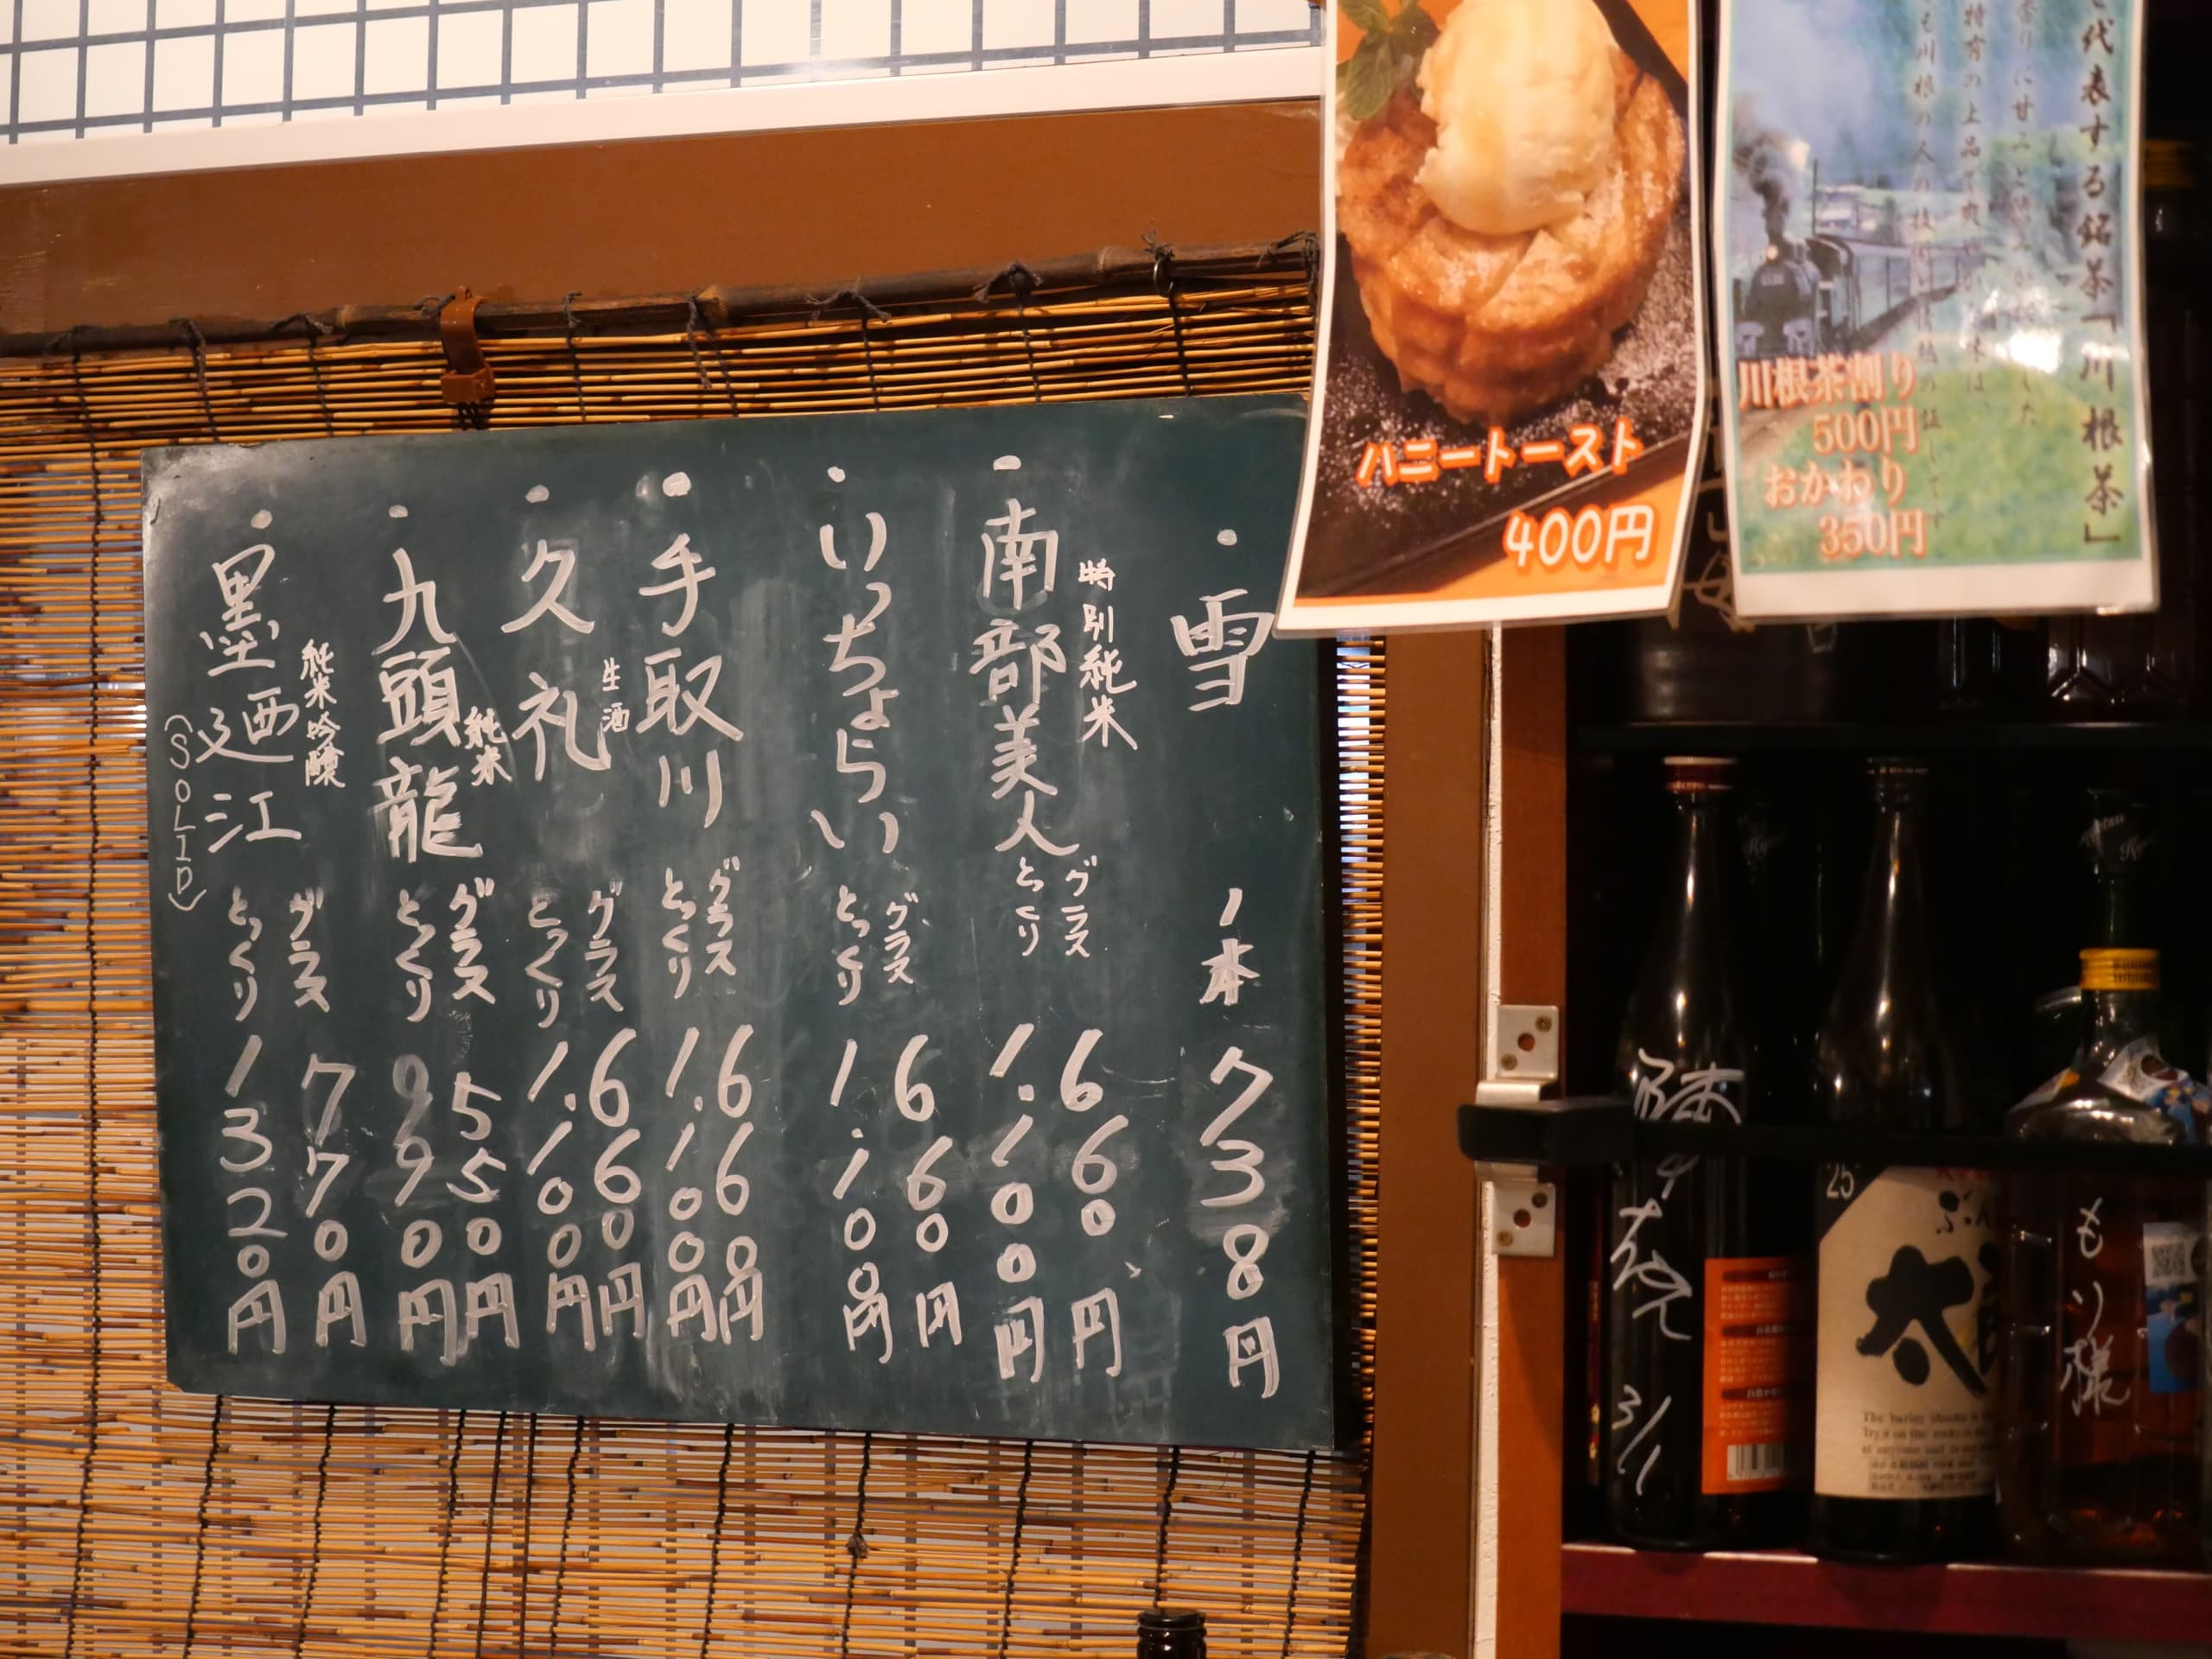 ・雪 1本 738円
・南部美人 特別純米
グラス 660円
とっくり 1.100円
・いっちょらい
グラス 660円
とっくり 1.100円
・手取川
グラス 660円
とっくり 1.100円
・久礼 生酒
グラス 660円
とっくり 1.100円
・九頭龍 純米
グラス 550円
とっくり 990円
・墨廼江 純米吟醸
(SOLID)
グラス 770円
とっくり 1320円
ハニートースト
400円
代表する銘茶「川根茶」
川根茶割り
500円
おかわり
350円
3/1
25
太
The barley shochu
もり様